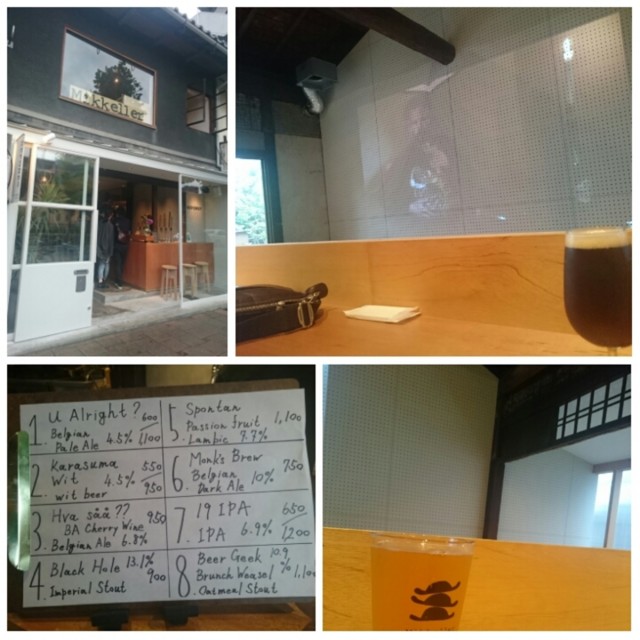 Mikkeller
1 U Alright? 600
Belgian
Pale Ale 4.5% 1,100
2 Karasuma 550
Wit 4.5%
wit beer 950
3 Hva såå?? 950
BA Cherry Wine
Belgian Ale 6.8%
4 Black Hole 13.1%
Imperial Stout 900
5 Spontan
Passion fruit 1,100
Lambic 7.7%
6 Monk's Brew 750
Belgian 10%
Dark Ale
7 19 IPA 650
IPA 6.9% 1200
8 Beer Geek 10.9
Brunch Weasel % 1,100
Oatmeal Stout